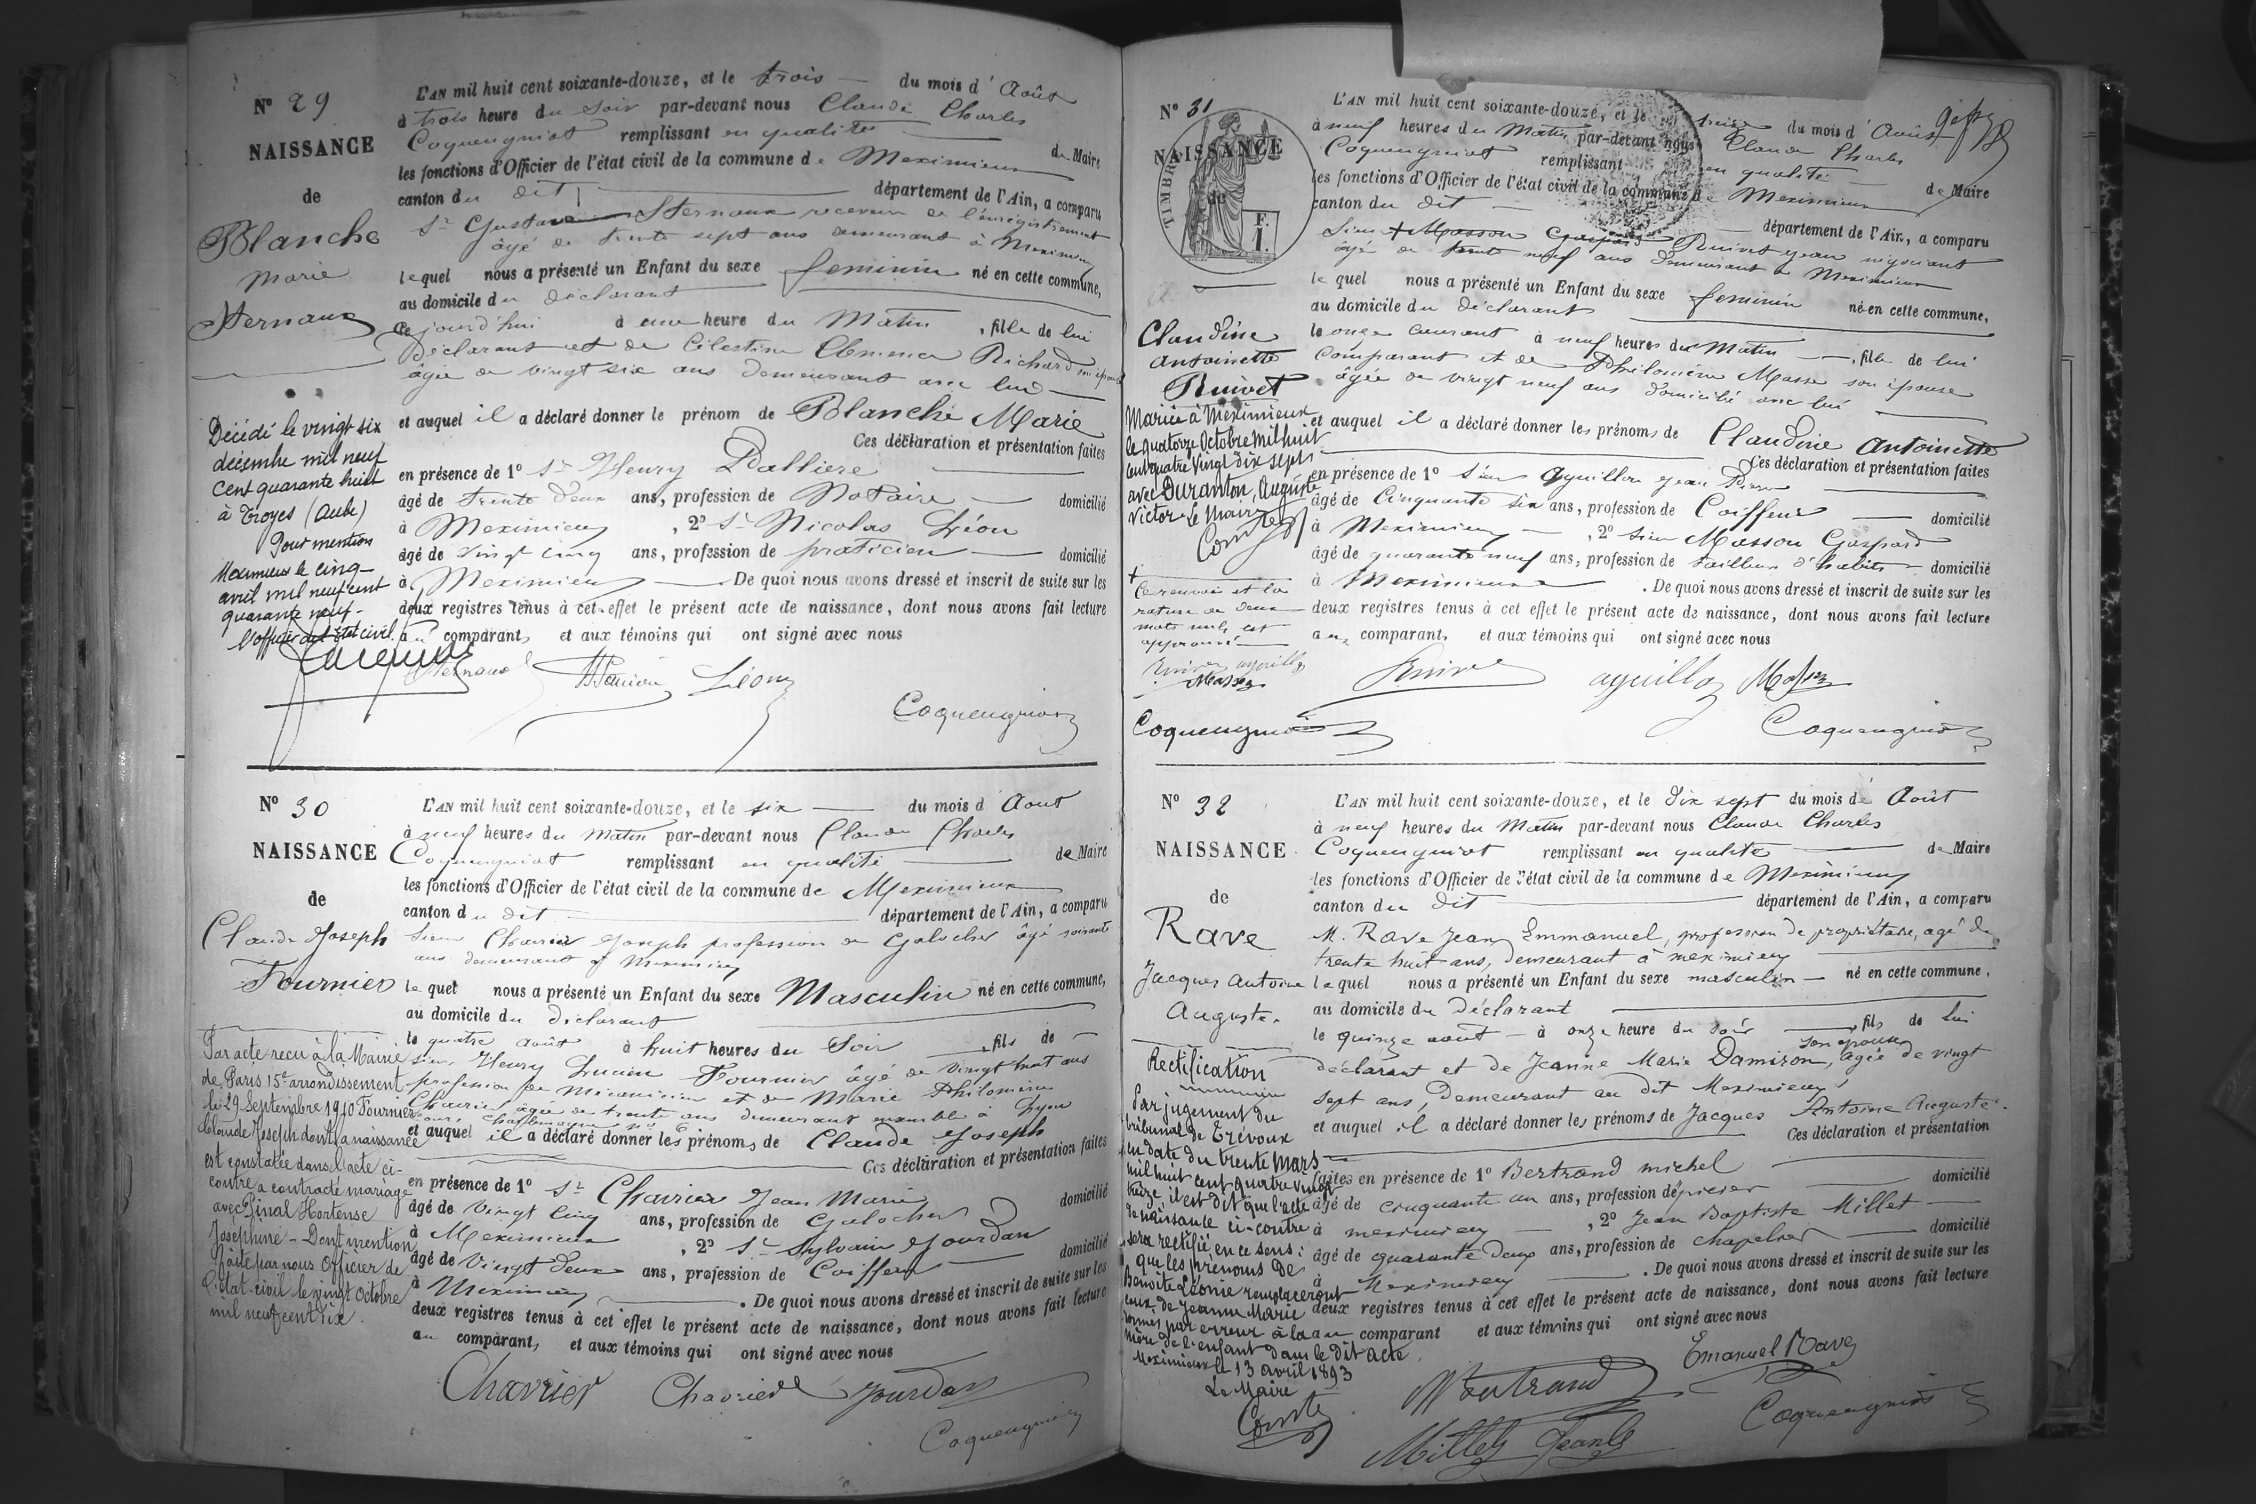 N° 29
NAISSANCE
de
Blanche
Marie
Sternaux
Décédé le vingt six
décembre mil neuf
cent quarante huit
à Troyes (Aube)
Pour mention
Meximieux le cinq
avril mil neuf cent
quarante neuf.
L'officier de l'état civil.
L'AN mil huit cent soixante-douze, et le trois du mois d'Août
à trois heure du soir par-devant nous Claude Charles
Coquengniot remplissant en qualité de Maire
les fonctions d'Officier de l'état civil de la commune de Meximieux
canton du dit département de l'Ain, a comparu
Sr Gustave Sternaux receveur de l'enregistrement
âgé de trente sept ans demeurant à Meximieux
lequel nous a présenté un Enfant du sexe feminin né en cette commune,
au domicile du déclarant
Ce jourd'hui à une heure du Matin, fille de lui
Déclarant et de Célestine Clemence Richard son épouse
âgée de vingt six ans demeurant avec lui
et auquel il a déclaré donner le prénom de Blanche Marie
Ces déclaration et présentation faites
en présence de 1° Sr Henry
âgé de Trente deux ans, profession de Notaire domicilié
à Meximieux, 2° Sr Nicolas Léon
âgé de vingt cinq ans, profession de praticien domicilié
à Meximieux De quoi nous avons dressé et inscrit de suite sur les
deux registres tenus à cet effet le présent acte de naissance, dont nous avons fait lecture
au comparant, et aux témoins qui ont signé avec nous
Sternaux Léon
Coquengniot
N° 30
NAISSANCE
de
Claude Joseph
Fournier
Par acte recu à la Mairie
de Paris 15e arrondissement
le 29 Septembre 1910 Fournier
Claude Joseph dont la naissance
est constatée dans l'acte ci-
contre a contracté mariage
avec Pinal Hortense
Joséphine - Dont mention
faite par nous Officier de
l'état-civil le vingt octobre
mil neuf cent dix.
L'AN mil huit cent soixante-douze, et le six du mois d'Aout
à neuf heures du matin par-devant nous Claude Charles
Coquengniot remplissant en qualité de Maire
les fonctions d'Officier de l'état civil de la commune de Meximieux
canton du dit département de l'Ain, a comparu
Sieur Chavrier Joseph profession de Galocher âgé soixante
ans demeurant à Meximieux
lequel nous a présenté un Enfant du sexe Masculin né en cette commune,
au domicile du déclarant
le quatre août à huit heures du Soir, fils de
sieur Henry Lucien Fournier âgé de vingt huit ans
profession de Mécanicien et de Marie Philomène
Chavrier âgée de trente ans demeurant ensemble à Lyon
et auquel il a déclaré donner les prénoms de Claude Joseph
Ces déclaration et présentation faites
en présence de 1° Sr Chavrier Jean Marie
âgé de vingt cinq ans, profession de Galocher domicilié
à Meximieux, 2° Sr Sylvain Jourdan
âgé de Vingt deux ans, profession de Coiffeur domicilié
à Meximieux. De quoi nous avons dressé et inscrit de suite sur les
deux registres tenus à cet effet le présent acte de naissance, dont nous avons fait lecture
au comparant, et aux témoins qui ont signé avec nous
Chavrier Chavrier Jourdan
Coquengniot
N° 31
NAISSANCE
de
TIMBRE
F.
1.
Claudine
Antoinette
Ruivet
Mariée à Meximieux
le quatorze Octobre mil huit
cent quatre vingt dix sept
avec Duranton, Auguste
Victor Le Maire
Comte
+
Le renvoi et la
rature de deux
mots nuls est
approuvé
Ruivet Ayuillon
Masson
Coquengniot
L'AN mil huit cent soixante-douze, et le treize du mois d'Août
à neuf heures du Matin par-devant nous Claude Charles
Coquengniot remplissant en qualité de Maire
les fonctions d'Officier de l'état civil de la commune de Meximieux
canton du dit département de l'Ain, a comparu
Sieur + Masson Gaspard Ruivet Jean négociant
âgé de trente neuf ans demeurant à Meximieux
lequel nous a présenté un Enfant du sexe feminin né en cette commune,
au domicile du déclarant
le onze courant à neuf heures du Matin, fille de lui
comparant et de Philomène Masse son épouse
âgée de vingt neuf ans domicilié avec lui
et auquel il a déclaré donner les prénoms de Claudine Antoinette
Ces déclaration et présentation faites
en présence de 1° Sieur Ayuillon Jean Pierre
âgé de Cinquante six ans, profession de Coiffeur domicilié
à Meximieux, 2° Sieur Masson Gaspard
âgé de quarante neuf ans, profession de tailleur d'habits domicilié
à Meximieux. De quoi nous avons dressé et inscrit de suite sur les
deux registres tenus à cet effet le présent acte de naissance, dont nous avons fait lecture
aux comparant, et aux témoins qui ont signé avec nous
Ruivet Ayuillon Masson
Coquengniot
N° 32
NAISSANCE
de
Rave
Jacques Antoine
Auguste.
Rectification
Par jugement du
tribunal de Trévoux
en date du trente Mars
mil huit cent quatre vingt
treize, il est dit que l'acte
de naissance ci-contre
sera rectifié en ce sens:
que les prénoms de
Benoîte Léonie remplaceront
ceux de Jeanne Marie
donnés par erreur à la
mère de l'enfant dans le dit acte.
Meximieux le 13 avril 1893
Le Maire
Comte
L'AN mil huit cent soixante-douze, et le Dix sept du mois de Août
à neuf heures du Matin par-devant nous Claude Charles
Coquengniot remplissant en qualité de Maire
les fonctions d'Officier de l'état civil de la commune de Meximieux
canton du dit département de l'Ain, a comparu
M. Rave Jean Emmanuel, profession de propriétaire, agé de
trente huit ans, demeurant à meximieux
lequel nous a présenté un Enfant du sexe masculin né en cette commune,
au domicile du Déclarant
le quinze août à onze heure du soir, fils de lui
déclarant et de Jeanne Marie Damiron, son épouse, agée de vingt
sept ans, demeurant au dit Meximieux
et auquel il a déclaré donner les prénoms de Jacques Antoine Auguste.
Ces déclaration et présentation
faites en présence de 1° Bertrand michel domicilié
âgé de cinquante un ans, profession d'épicier
à meximieux, 2° Jean Baptiste Millet
âgé de quarante deux ans, profession de chapelier domicilié
à Meximieux. De quoi nous avons dressé et inscrit de suite sur les
deux registres tenus à cet effet le présent acte de naissance, dont nous avons fait lecture
au comparant et aux témoins qui ont signé avec nous
Emanuel Rave
Bertrand
Coquengniot
Millet